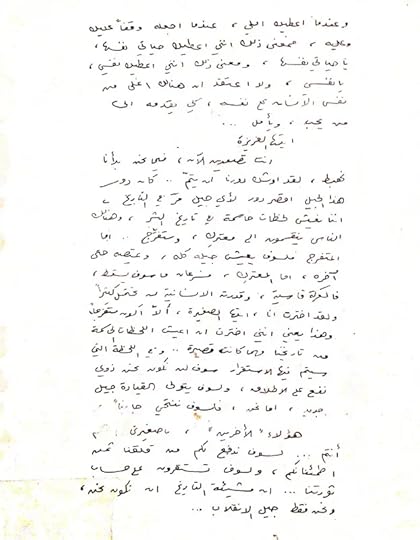 وعندما اعطيك اياي ، عندما اجعله وقفاً عليك
وعليه ، فمعنى ذلك انني اعطيك حياتي نفسها ،
يا حياتي نفسها ، ومعنى ذلك انني اعطيك نفسي ،
يا نفسي ، ولا اعتقد ان هنالك اغلى من
نفس الانسان مع نفسه ، كي يقدمه الى
من يحب ، ويأمل ...
ايتها العزيزة
انت تصعدين الآن ، فيما نحن بدأنا
نهبط ، لقد اوشك دورنا ان يتمّ .. كان دور
هذا الجيل اقصر دور لأي جيل مرّ مع التاريخ ،
اننا نعيش لحظات حاسمة في تاريخ البشر ، وهنالك
الناس ينقسمون الى معترك ، ومتفرج .. اما
المتفرج فسوف يعيش جيله كله ، ويمتصه حتى
آخره ، اما المعترك ، فسرعان ما سوف يسقط ،
فالمعركة قاسية ، وقدرته الانسانية لا تحتمل كثيراً
ولقد اخترت انا ، ايتها الصغيرة ، ألاّ اكون متفرجاً
وهذا يعني انني اخترت ان اعيش اللحظات الحاسمة
من تاريخنا مهما كانت قصيرة .. وفي اللحظة التي
سيتم فيها الاستقرار سوف لن نكون نحن ذوي
نفع على الاطلاق ، ولسوف يتولى القيادة جيل
جديد ، اما نحن ، فلسوف ننتحي جانباً
هؤلاء " الآخرين " ، يا صغيرتي
أنتم ... لسوف ندفع لكم من قلقنا ثمن
اطمئنانكم ، ولسوف تستقرون على حساب
ثورتنا ... ان مشيئة التاريخ ان نكون نحن ،
ونحن فقط جيل الانقلاب ...